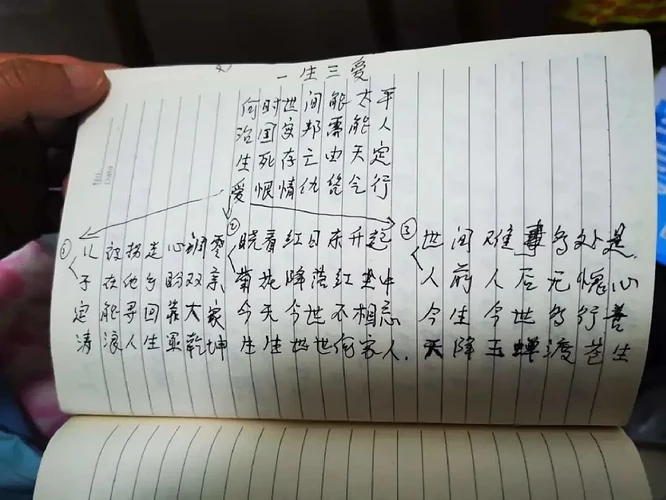 一生三爱
何时世间能太平
治国安邦需能人
生死存亡由天定
爱恨情仇随今行
①
儿被拐走心珊零
子在他乡盼双亲
定能寻回靠大家
涛浪人生军乾坤
②
晓看红日东升起
菊花降落红尘中
今天今世不相忘
生生世世何家人.
③
世间难事多处是.
人前人后无愧心
今生今世多行善
天降玉蝉渡苍生
No.
Date